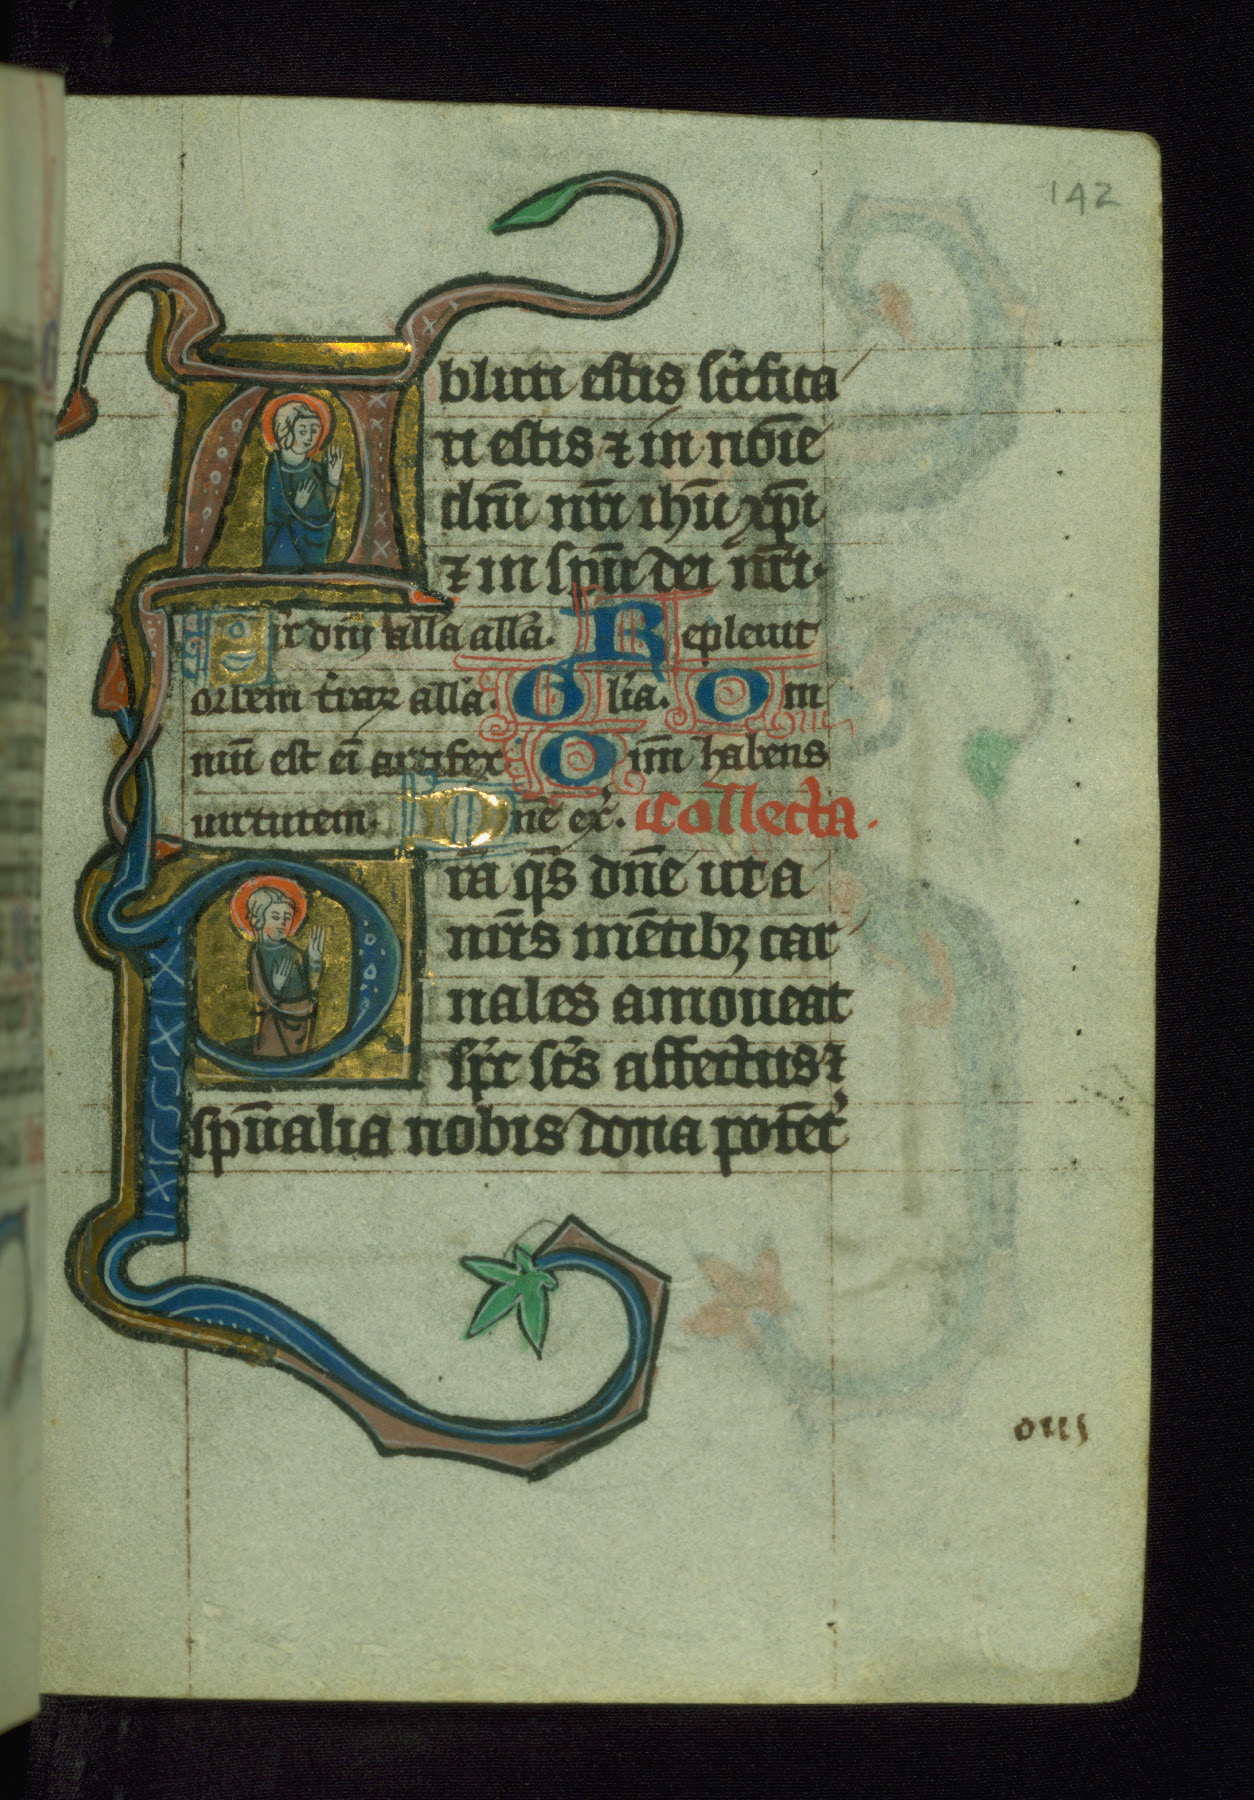 142
Abluti estis sc̄ifica
ti estis ⁊ in noīe
dn̄i nr̄i ihū xp̄i
⁊ in sp̄u dei nr̄i·
Sp̄r dn̄i all̄a all̄a. Repleuit
orbem t̄raꝝ all̄a. Gl̄ia. Om
niū est ei᷑ artifex Oīm habens
uirtutem. Om̄e ex̄. Collecta.
Pr̄a qs̄ dn̄e ut a
nr̄is mētibꝫ car
nales amoueat
sp̄c sc̄s affectus ⁊
sp̄ualia nobis dona potēt᷑